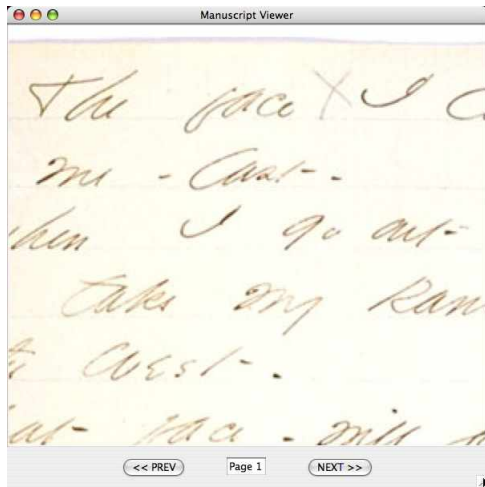 Manuscript Viewer
The face X I c
me - last -
hen I go out -
take my Ran
West -
at face - will
<< PREV Page 1 NEXT >>